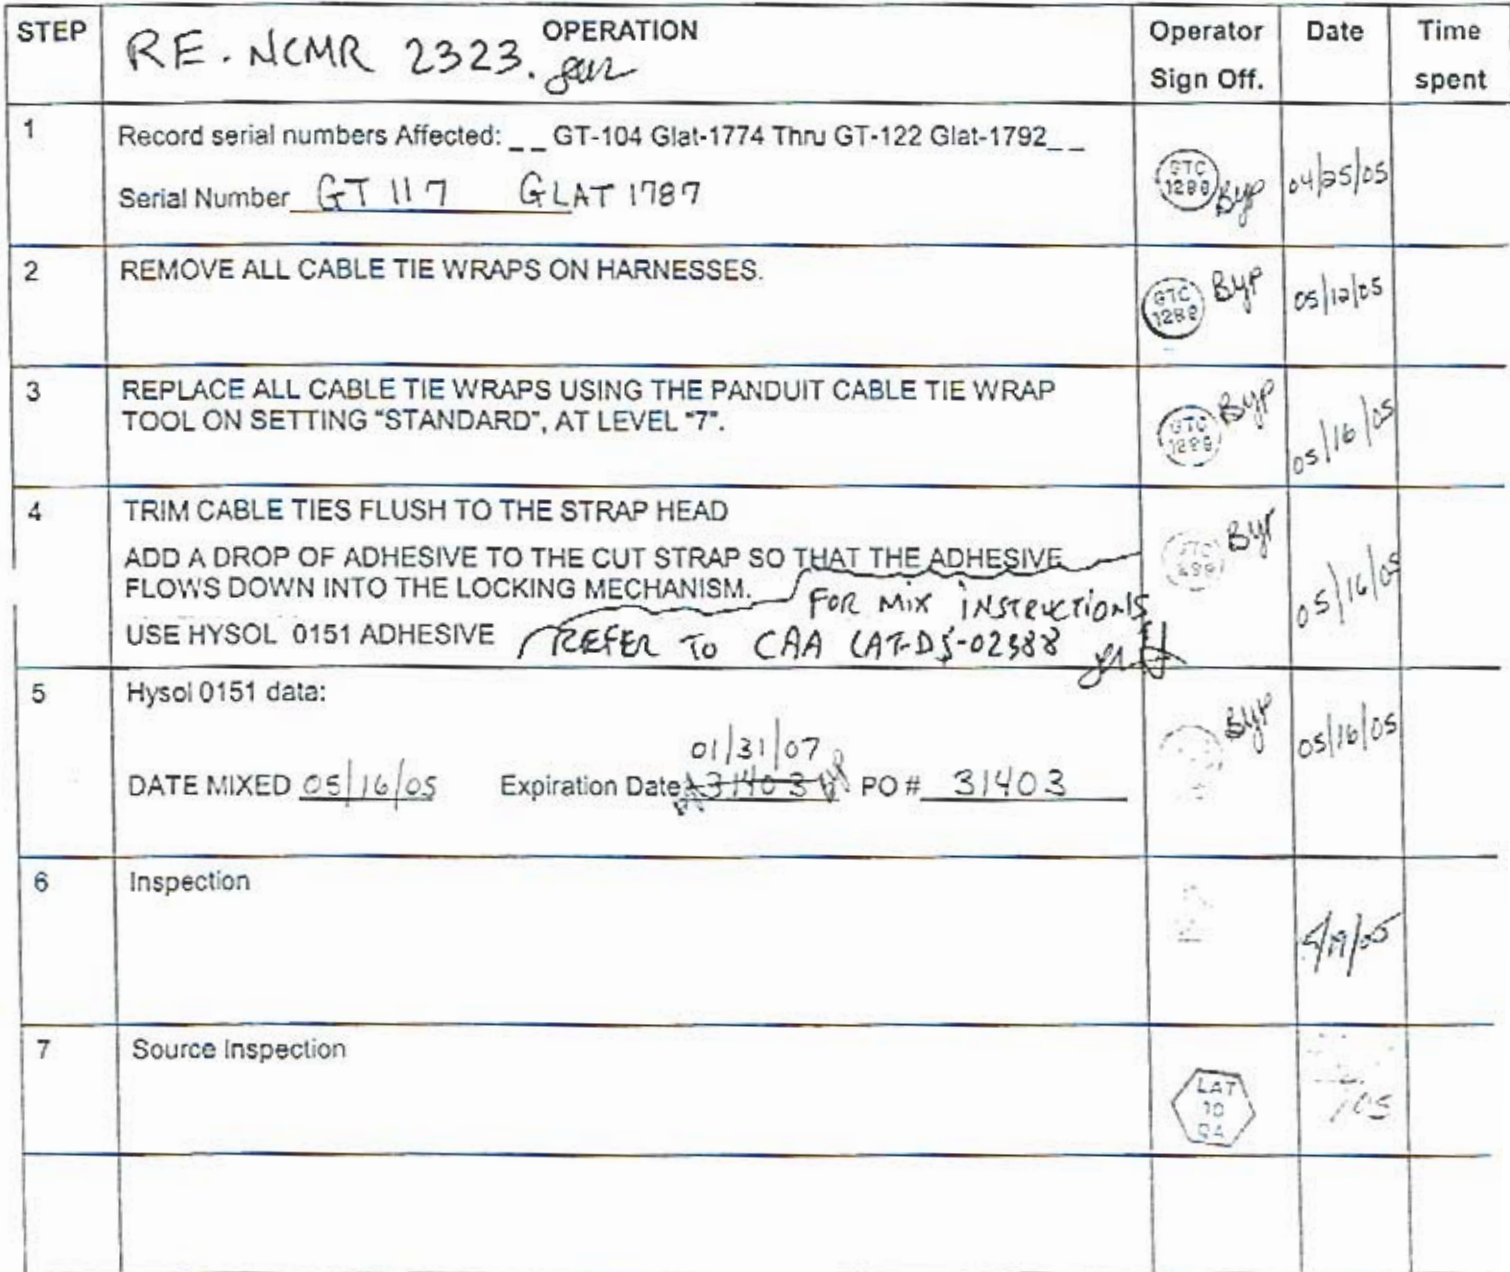 STEP OPERATION Operator Sign Off. Date Time spent
RE. NCMR 2323.
1 Record serial numbers Affected: _ _ GT-104 Glat-1774 Thru GT-122 Glat-1792_ _
Serial Number GT 117 GLAT 1787
GTC 1288 Byp 04/25/05
2 REMOVE ALL CABLE TIE WRAPS ON HARNESSES.
GTC 1288 Byp 05/12/05
3 REPLACE ALL CABLE TIE WRAPS USING THE PANDUIT CABLE TIE WRAP
TOOL ON SETTING "STANDARD", AT LEVEL "7".
GTC 1288 Byp 05/16/05
4 TRIM CABLE TIES FLUSH TO THE STRAP HEAD
ADD A DROP OF ADHESIVE TO THE CUT STRAP SO THAT THE ADHESIVE
FLOWS DOWN INTO THE LOCKING MECHANISM.
FOR MIX INSTRUCTIONS
USE HYSOL 0151 ADHESIVE REFER TO CAA LAT-DS-02388
Byp 05/16/05
5 Hysol 0151 data:
Byp 05/16/05
01/31/07
DATE MIXED 05/16/05 Expiration Date 31403 PO # 31403
6 Inspection
5/19/05
7 Source Inspection
LAT
10
QA
/05